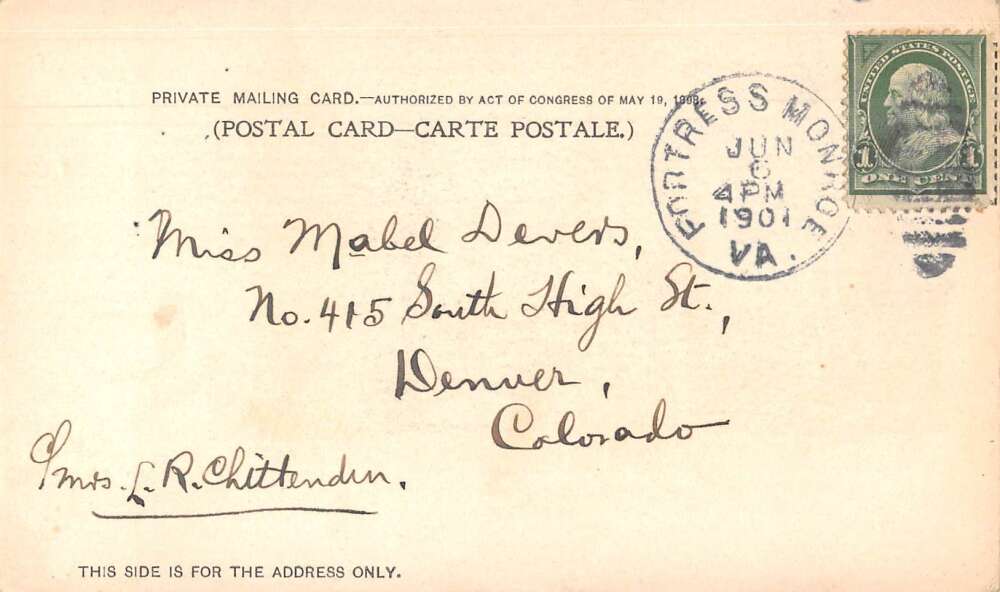 PRIVATE MAILING CARD.—AUTHORIZED BY ACT OF CONGRESS OF MAY 19, 1898.
(POSTAL CARD—CARTE POSTALE.)
UNITED STATES POSTAGE
1 1
ONE CENT
FORTRESS MONROE
JUN
6
4 PM
1901
VA.
Miss Mabel Devers,
No. 415 South High St.,
Denver,
Colorado
Mrs. L. R. Chittenden.
THIS SIDE IS FOR THE ADDRESS ONLY.